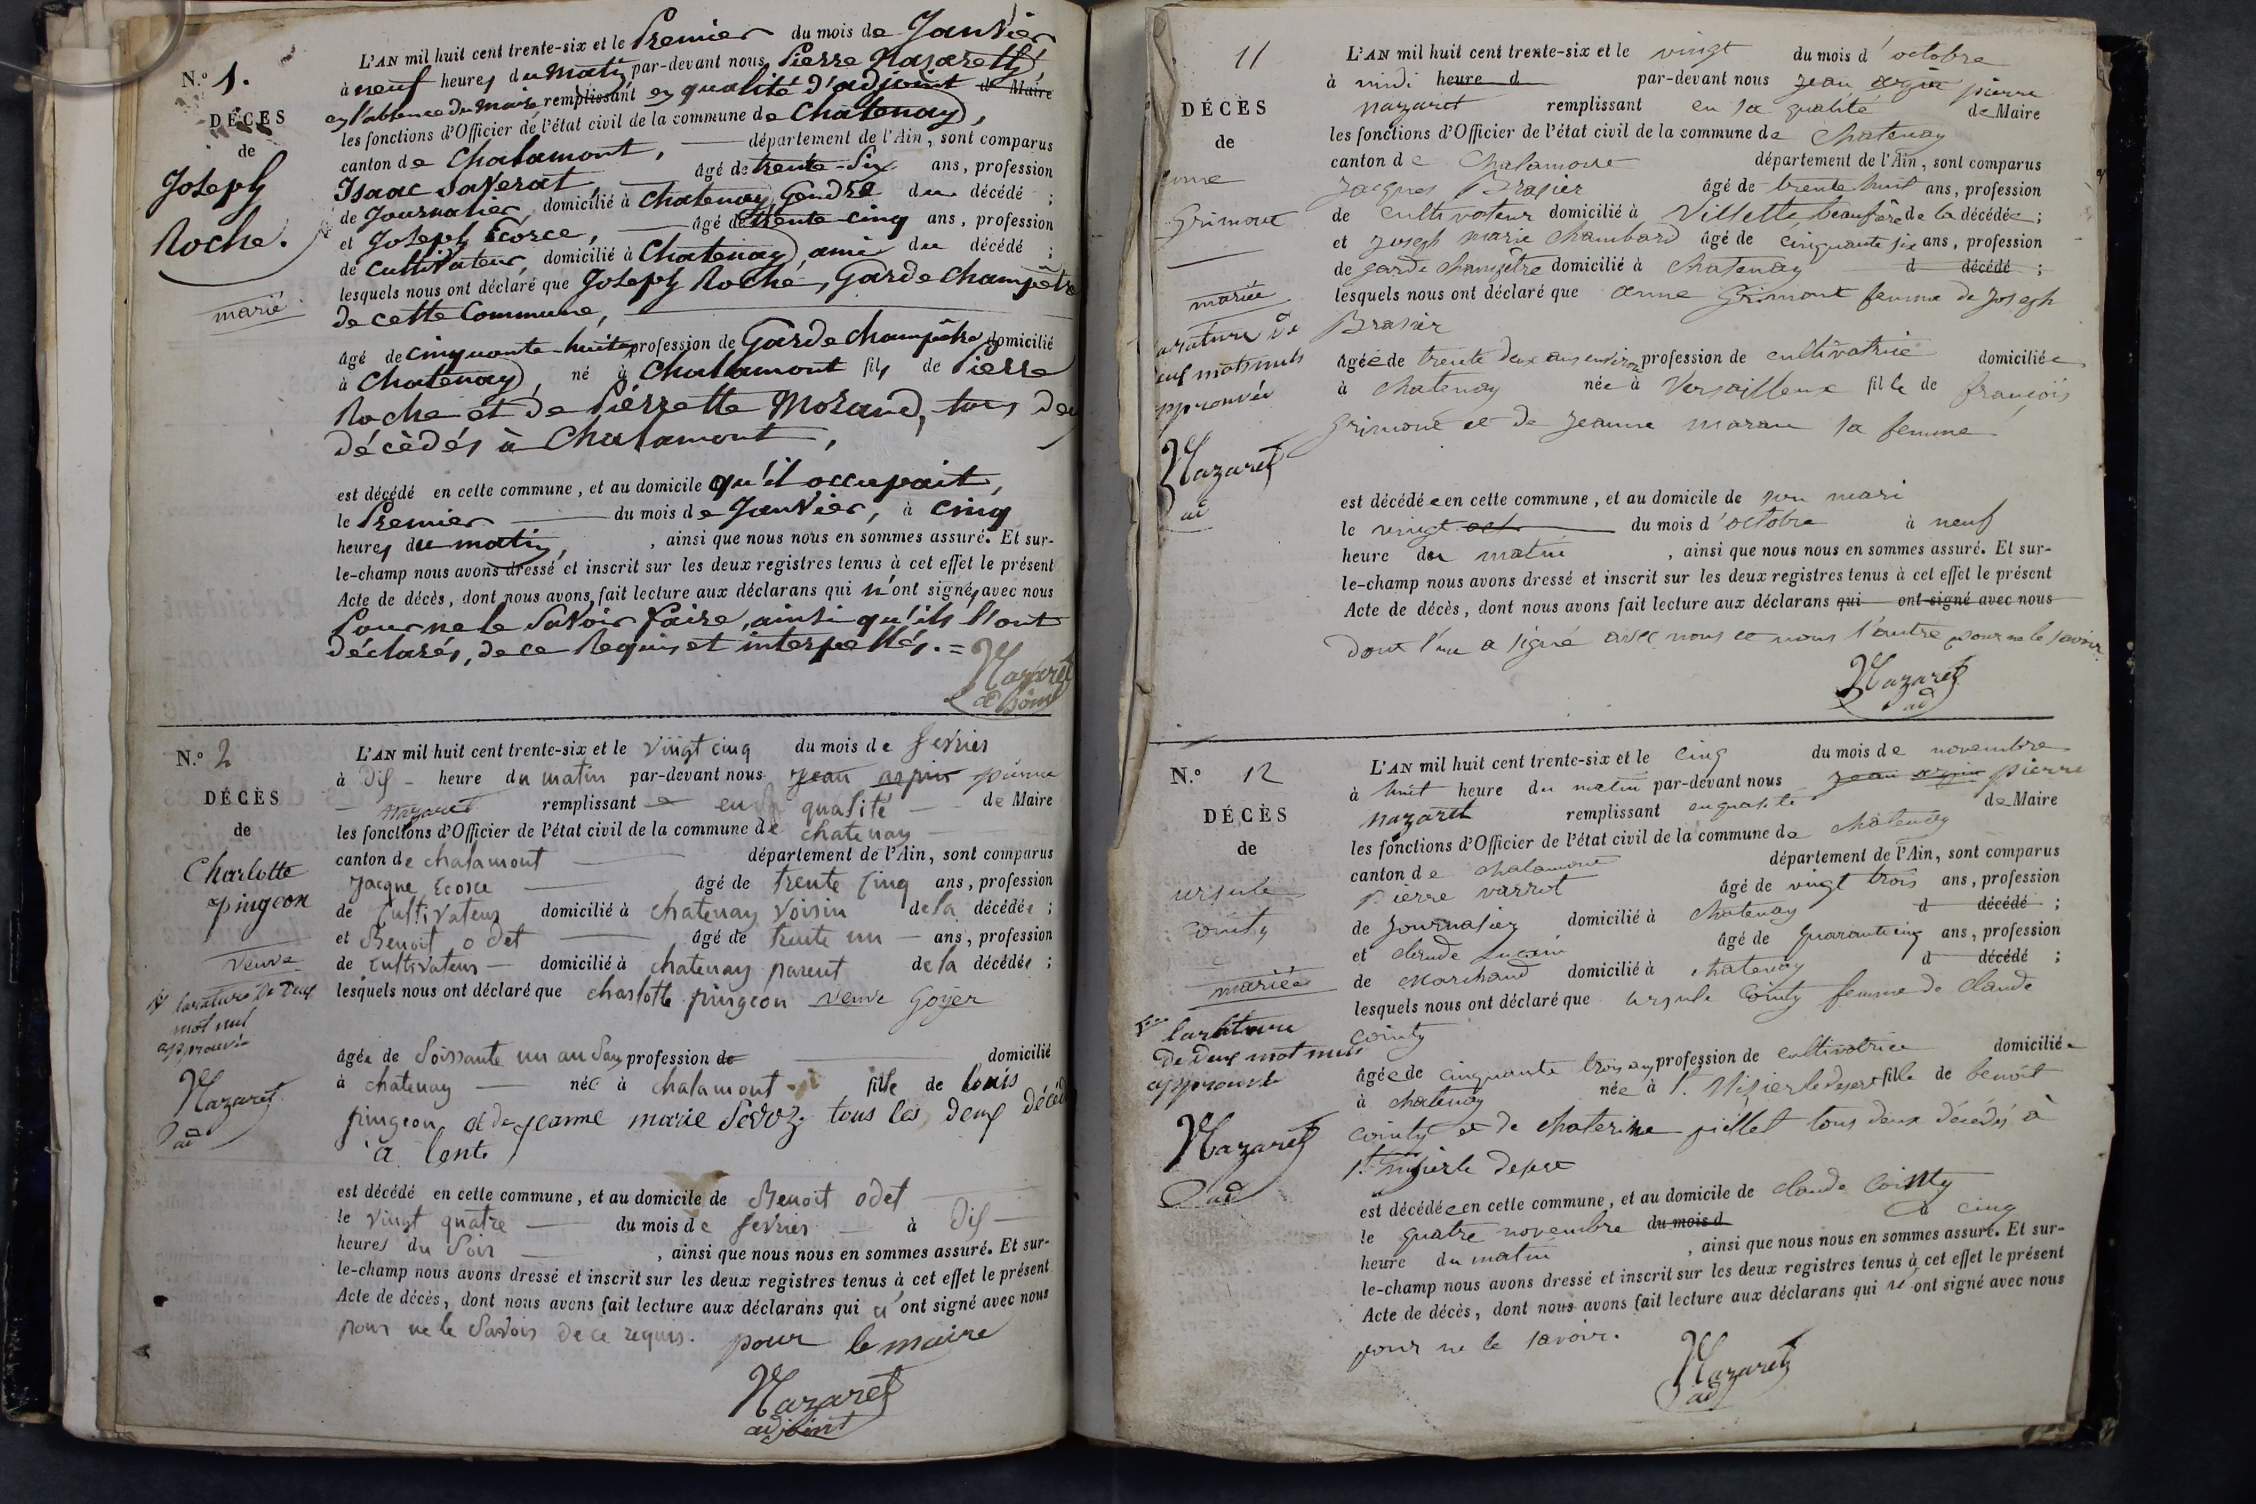 N.o 1.
DÉCÈS
de
Joseph
Roche.
marié
L'AN mil huit cent trente-six et le Premier du mois de Janvier
à neuf heures du matin par-devant nous Pierre Nazareth,
en l'absence du Maire remplissant en qualité d'adjoint de Maire
les fonctions d'Officier de l'état civil de la commune de Chatenay,
canton de Chalamont, département de l'Ain, sont comparus
Isaac Saverat âgé de trente-six ans, profession
de Journalier, domicilié à Chatenay, Gendre du décédé ;
et Joseph Ecorce, âgé de trente cinq ans, profession
de Cultivateur, domicilié à Chatenay ami du décédé ;
lesquels nous ont déclaré que Joseph Roche, Garde Champêtre
de cette Commune,
âgé de cinquante-huit profession de Garde Champêtre domicilié
à Chatenay, né à Chalamont fils de Pierre
Roche et de Pierrette Morand, tous deux
décédés à Chalamont,
est décédé en cette commune, et au domicile qu'il occupait,
le Premier du mois de Janvier, à cinq
heures du matin, , ainsi que nous nous en sommes assuré. Et sur-
le-champ nous avons dressé et inscrit sur les deux registres tenus à cet effet le présent
Acte de décès, dont nous avons fait lecture aux déclarans qui n'ont signé, avec nous
Pour ne le Savoir faire, ainsi qu'ils l'ont
déclarés, de ce Requis et interpellés. =
Nazaret
adjoint
N.o 2
DÉCÈS
de
Charlotte
pingeon
veuve
la rature de deux
mot nul
approuvée
Nazaret
ad
L'AN mil huit cent trente-six et le vingt cinq du mois de fevrier
à dix heure du matin par-devant nous Jean arpin pierre
nazaret remplissant en sa qualité de Maire
les fonctions d'Officier de l'état civil de la commune de chatenay
canton de chalamont département de l'Ain, sont comparus
Jacque Ecorce âgé de trente cinq ans, profession
de Cultivateur domicilié à chatenay Voisin de la décédée ;
et Benoit odet âgé de trente un ans, profession
de Cultivateur domicilié à chatenay parent de la décédée ;
lesquels nous ont déclaré que charlotte pingeon veuve Goyer
âgée de Soissante un an profession de domicilié
à chatenay née à chalamont fille de louis
pingeon et de jeanne marie Sevoz tous les deux décédé
a lent
est décédé en cette commune, et au domicile de Benoit odet
le vingt quatre du mois de fevrier à dix
heures du Soir , ainsi que nous nous en sommes assuré. Et sur-
le-champ nous avons dressé et inscrit sur les deux registres tenus à cet effet le présent
Acte de décès, dont nous avons fait lecture aux déclarans qui n'ont signé avec nous
pour ne le Savoir de ce requis. pour le maire
Nazaret
adjoint
11
DÉCÈS
de
Grimont
mariée
mots nuls
approuvée
Nazaret
ad
L'AN mil huit cent trente-six et le vingt du mois d'octobre
à midi heure d par-devant nous Jean arpin pierre
nazaret remplissant en sa qualité de Maire
les fonctions d'Officier de l'état civil de la commune de Chatenay
canton de Chalamont département de l'Ain, sont comparus
Jacques Brasier âgé de trente huit ans, profession
de cultivateur domicilié à Villette beaufrère de la décédée ;
et joseph marie Chambard âgé de cinquante six ans, profession
de garde champêtre domicilié à chatenay d décédé ;
lesquels nous ont déclaré que anne Grimont femme de Joseph
Brasier
âgée de trente deux ans environ profession de cultivatrice domiciliée
à Chatenay née à Versailleux fille de françois
Grimont et de Jeanne maran sa femme
est décédée en cette commune, et au domicile de son mari
le vingt oct du mois d'octobre à neuf
heure du matin , ainsi que nous nous en sommes assuré. Et sur-
le-champ nous avons dressé et inscrit sur les deux registres tenus à cet effet le présent
Acte de décès, dont nous avons fait lecture aux déclarans qui ont signé avec nous
Dont l'un a signé avec nous et nous l'autre pour ne le savoir
Nazaret
ad
N.o 12
DÉCÈS
de
ursule
Cointy
mariée
la rature
de deux mot nuls
approuvé
Nazaret
ad
L'AN mil huit cent trente-six et le cinq du mois de novembre
à huit heure du matin par-devant nous Jean arpin pierre
nazaret remplissant en qualité de Maire
les fonctions d'Officier de l'état civil de la commune de chatenay
canton de chalamont département de l'Ain, sont comparus
Pierre varrot âgé de vingt trois ans, profession
de Journalier domicilié à Chatenay d décédé ;
et claude Lucain âgé de quarante cinq ans, profession
de Marchand domicilié à chatenay d décédé ;
lesquels nous ont déclaré que ursule Cointy femme de claude
Cointy
âgée de cinquante trois ans profession de cultivatrice domiciliée
à chatenay née à St. Nizier le desert fille de benoit
Cointy et de chaterine pillet tous deux décédés à
St. Nizier le desert
est décédée en cette commune, et au domicile de claude Cointy
le quatre novembre du mois d à cinq
heure du matin , ainsi que nous nous en sommes assuré. Et sur-
le-champ nous avons dressé et inscrit sur les deux registres tenus à cet effet le présent
Acte de décès, dont nous avons fait lecture aux déclarans qui n'ont signé avec nous
pour ne le savoir.
Nazaret
ad